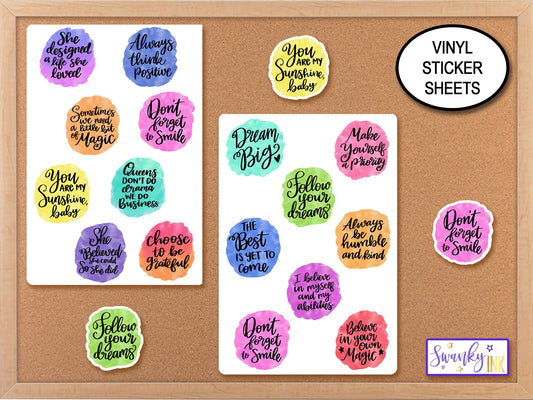 She
designed
a life she
loved
Always
think
Positive
Sometimes
we need
a little bit
of Magic
Don't
forget
to Smile
You
ARE MY
Sunshine,
baby
Queens
DON'T DO
drama
WE DO
Business
She
Believed
she could
So she did
choose
to be
grateful
Follow
your
dreams
You
ARE MY
Sunshine,
baby
VINYL
STICKER
SHEETS
Dream
Big
Make
Yourself
a Priority
Follow
your
dreams
THE
Best
IS YET TO
COME
Always
be
humble
and kind
I believe
in myself
and my
abilities
Don't
forget
to Smile
Believe
in your own
Magic
Don't
forget
to Smile
Swanky INK